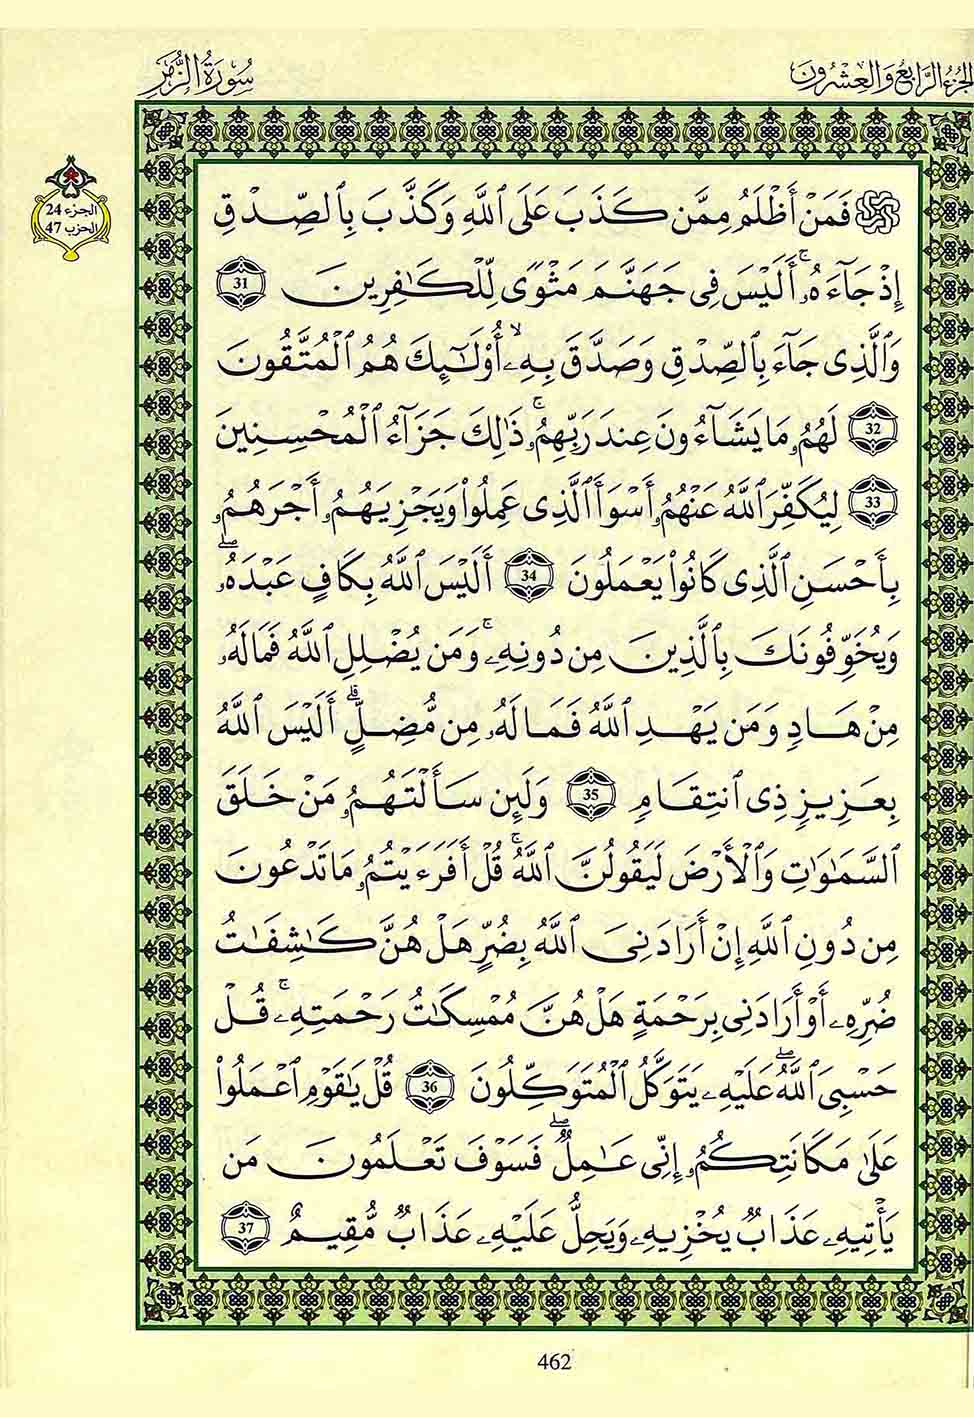 الجزء الرابع والعشرون
سورة الزمر
الجزء 24
الحزب 47
۞ فَمَنْ أَظْلَمُ مِمَّن كَذَبَ عَلَى ٱللَّهِ وَكَذَّبَ بِالصِّدْقِ
إِذْ جَآءَهُۥٓۚ أَلَيْسَ فِى جَهَنَّمَ مَثْوًى لِّلْكَٰفِرِينَ 31
وَٱلَّذِى جَآءَ بِٱلصِّدْقِ وَصَدَّقَ بِهِۦ أُوْلَٰٓئِكَ هُمُ ٱلْمُتَّقُونَ
32 لَهُمُۥ مَا يَشَآءُونَ عِندَ رَبِّهِمُۥۚ ذَٰلِكَ جَزَآءُ ٱلْمُحْسِنِينَ
33 لِيُكَفِّرَ ٱللَّهُ عَنْهُمُۥ أَسْوَأَ ٱلَّذِى عَمِلُواْ وَيَجْزِيَهُمُۥ أَجْرَهُمُۥ
بِأَحْسَنِ ٱلَّذِى كَانُواْ يَعْمَلُونَ 34 أَلَيْسَ ٱللَّهُ بِكَافٍ عَبْدَهُۥۖ
وَيُخَوِّفُونَكَ بِٱلَّذِينَ مِن دُونِهِۦۚ وَمَن يُضْلِلِ ٱللَّهُ فَمَا لَهُۥ
مِنْ هَادٍ وَمَن يَهْدِ ٱللَّهُ فَمَا لَهُۥ مِن مُّضِلٍّۗ أَلَيْسَ ٱللَّهُ
بِعَزِيزٍ ذِى ٱنتِقَامٍ 35 وَلَئِن سَأَلْتَهُمُۥ مَنْ خَلَقَ
ٱلسَّمَٰوَٰتِ وَٱلْأَرْضَ لَيَقُولُنَّ ٱللَّهُۚ قُلْ أَفَرَءَيْتُمُۥ مَا تَدْعُونَ
مِن دُونِ ٱللَّهِ إِنْ أَرَادَنِىَ ٱللَّهُ بِضُرٍّ هَلْ هُنَّ كَٰشِفَٰتُ
ضُرِّهِۦ أَوْ أَرَادَنِى بِرَحْمَةٍ هَلْ هُنَّ مُمْسِكَٰتُ رَحْمَتِهِۦۚ قُلْ
حَسْبِىَ ٱللَّهُۖ عَلَيْهِۦ يَتَوَكَّلُ ٱلْمُتَوَكِّلُونَ 36 قُلْ يَٰقَوْمِ ٱعْمَلُواْ
عَلَىٰ مَكَانَتِكُمُۥ إِنِّى عَٰمِلٌۖ فَسَوْفَ تَعْلَمُونَ مَن
يَأْتِيهِۦ عَذَابٌ يُخْزِيهِۦ وَيَحِلُّ عَلَيْهِۦ عَذَابٌ مُّقِيمٌ 37
462